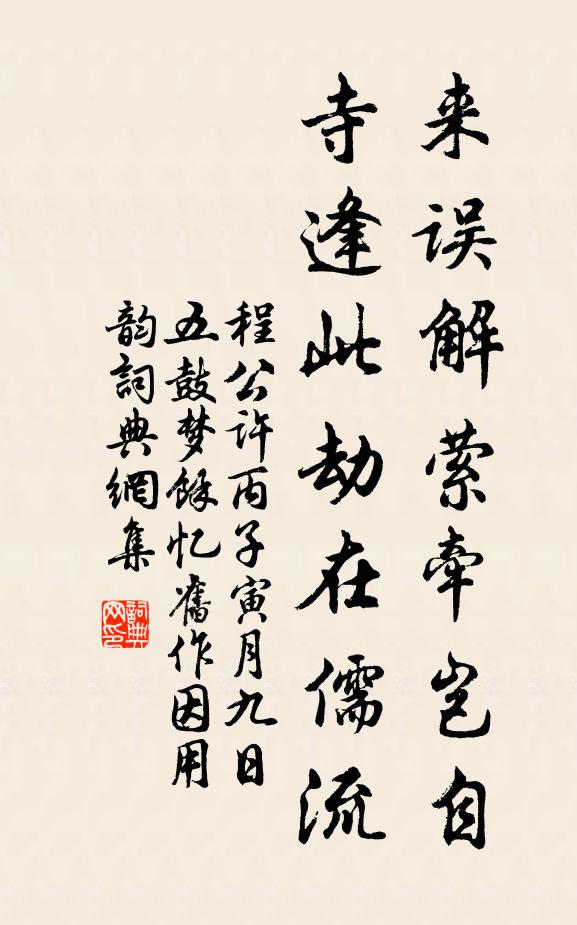 来误解萦牵岂自
寺逢此劫在儒流
程公许丙子寅月九日
五鼓梦馀忆旧作因用
韵词典网集
词典网印